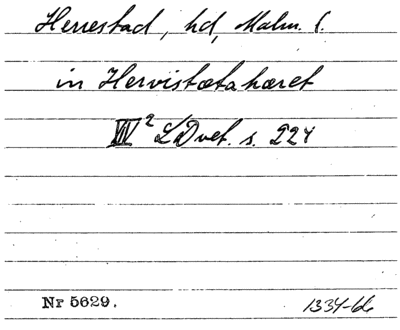 Herrestad, hd, Malm. l.
in Hervistætahæret
XII² LDvet. s. 224
Nr 5629.
1334-66